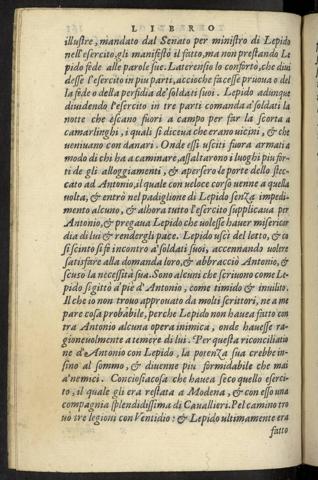 LIBRO
illustre, mandato dal Senato per ministro di Lepido
nell'esercito, gli manifestò il fatto, ma non prestando Le
pido fede alle parole sue. Laterensio lo confortò, che divi
desse l'esercito in piu parti, accioche facesse pruova o del
la fede o della perfidia de' soldati suoi. Lepido adunque
dividendo l'esercito in tre parti comanda a' soldati la
notte che escano fuori a campo per far la scorta a
camarlinghi, i quali si diceva che erano vicini, & che
venivano con danari. Onde essi usciti fuora armati a
modo di chi ha a caminare, assaltarono i luoghi piu for-
ti de gli alloggiamenti, & apersero le porte dello stec-
cato ad Antonio, il quale con veloce corso venne a quella
volta, & entrò nel padiglione di Lepido senza impedi-
mento alcuno, & alhora tutto l'esercito supplicava per
Antonio, & pregava Lepido che volesse haver misericor
dia di lui & rendergli pace. Lepido uscì del letto, & co
si scinto si fe incontro a' soldati suoi, accennando volere
satisfare alla domanda loro, & abbracciò Antonio, &
scusò la necessità sua. Sono alcuni che scrivono come Le-
pido si gittò a' piè d'Antonio, come timido & invilito.
Il che io non trovo approvato da molti scrittori, ne a me
pare cosa probabile, perche Lepido non haveva fatto con
tra Antonio alcuna opera inimica, onde havesse ra-
gionevolmente a temere di lui. Per questa riconciliatio
ne d'Antonio con Lepido, la potenza sua crebbe in-
sino al sommo, & divenne piu formidabile che mai
a' nemici. Conciosiacosa che haveva seco quello eserci-
to, il quale gli era restato a Modena, & con esso una
compagnia splendidissima di Cavallieri. Pel camino tro
vò tre legioni con Ventidio: & Lepido ultimamente era
fatto